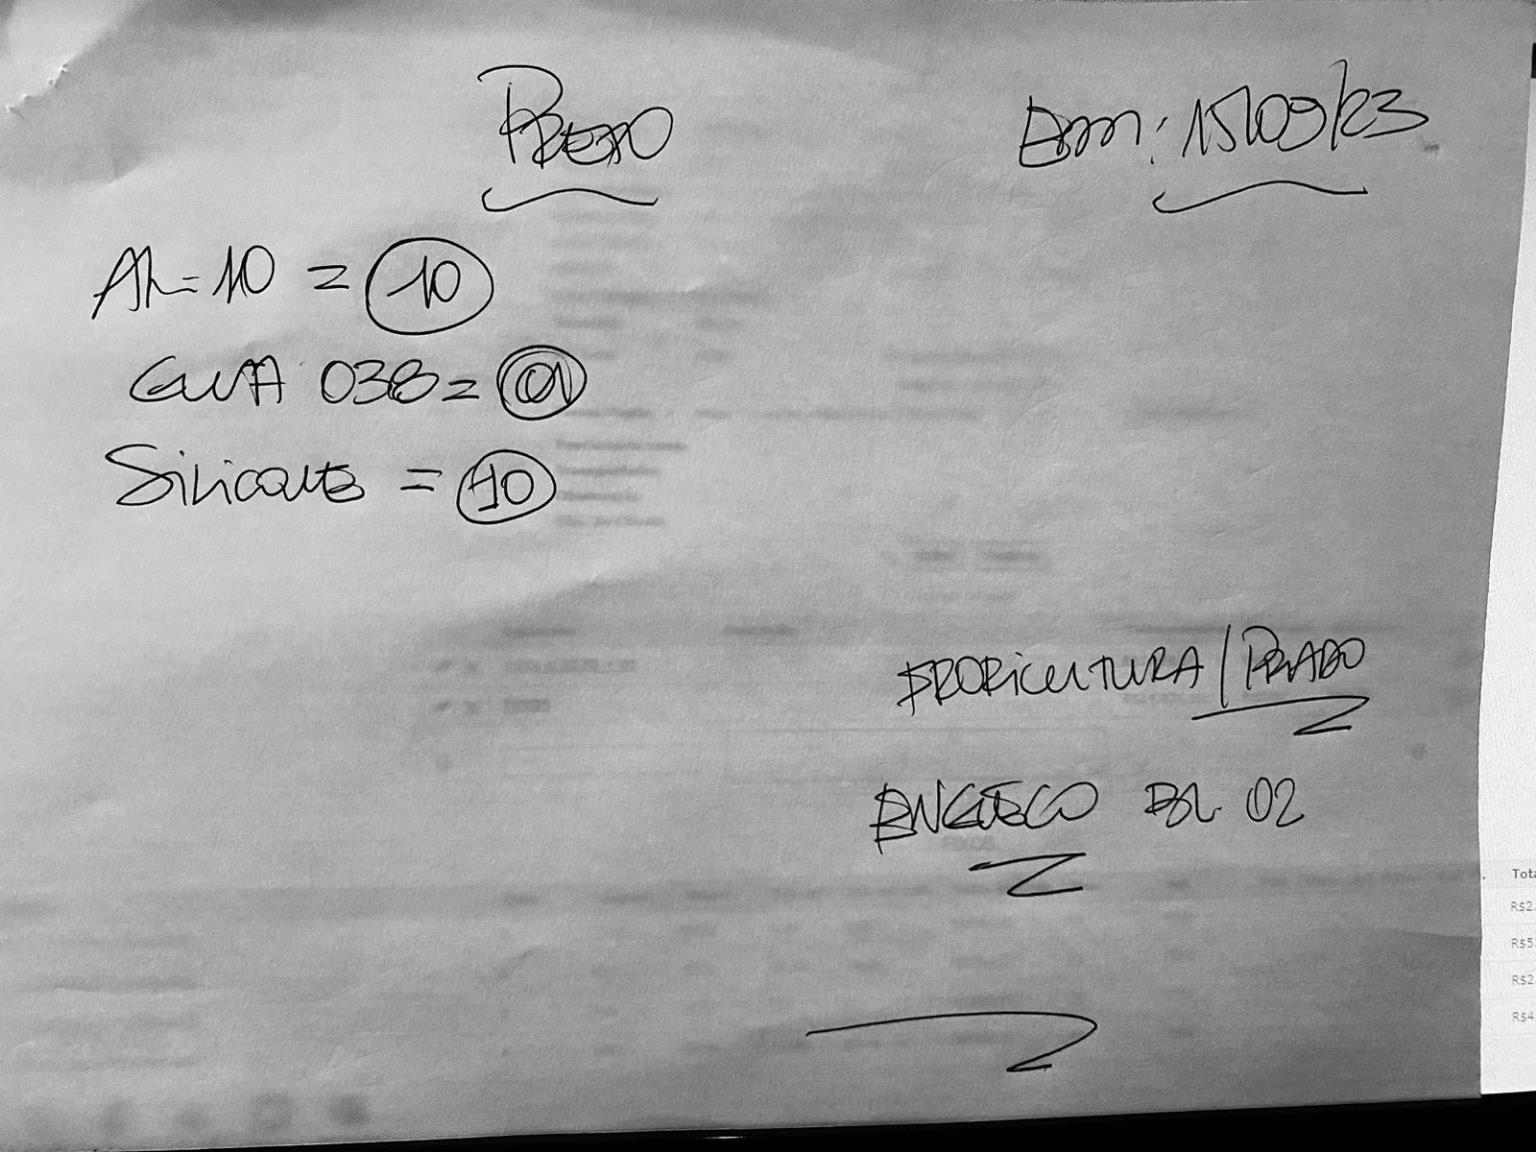 Em: 15/09/23
AL=10 = 10
GUIA 038 = 01
SILICONE = 10
FRORICULTURA / PRADO
ENGESCO BL 02
Tota
R$2
R$5
R$2
R$4